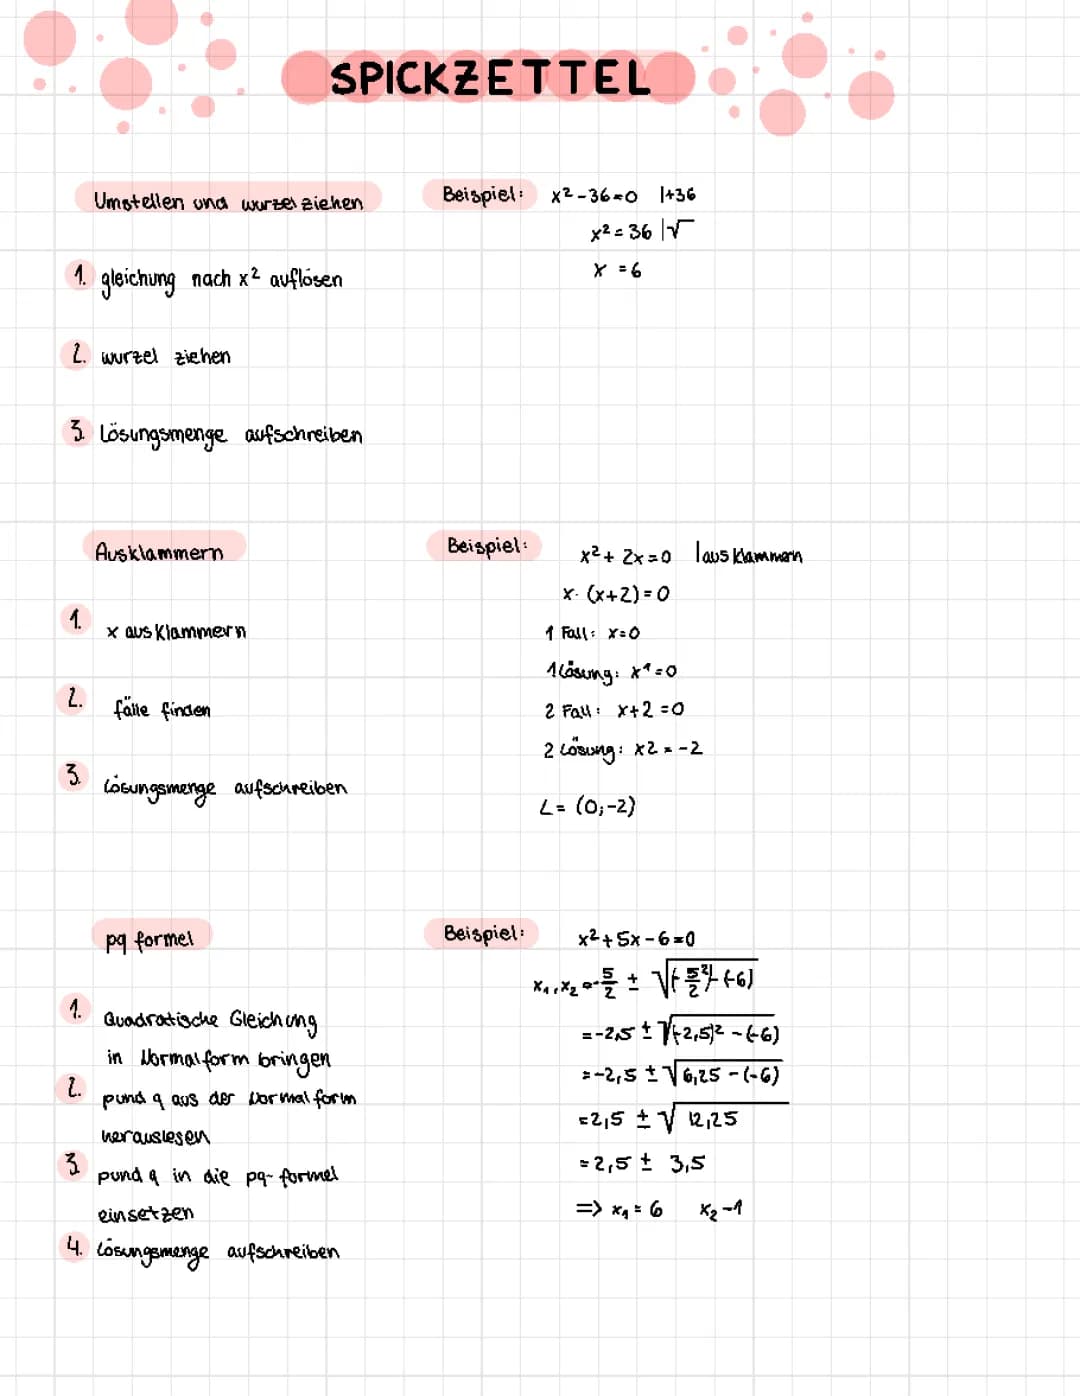 SPICKZETTEL
Umstellen und wurzel ziehen
1. gleichung nach x² auflösen
2. wurzel ziehen
3. Lösungsmenge aufschreiben
Beispiel: x²-36=0 |+36
x²=36 |√
x =6
Ausklammern
1. x ausklammern
2. fälle finden
3. Lösungsmenge aufschreiben
Beispiel: x²+2x=0 |ausklammern
x·(x+2)=0
1 Fall: x=0
1 Lösung: x¹=0
2 Fall: x+2=0
2 Lösung: x2=-2
L=(0;-2)
pq formel
1. Quadratische Gleichung
in Normalform bringen
2. p und q aus der Normalform
herauslesen
3. p und q in die pq-formel
einsetzen
4. Lösungsmenge aufschreiben
Beispiel: x²+5x-6=0
x₁,x₂=-5/2 ± √(-5/2)²-(-6)
=-2,5 ± √(-2,5)²-(-6)
=-2,5 ± √6,25-(-6)
=2,5 ± √12,25
=2,5 ± 3,5
=> x₁=6 x₂-1